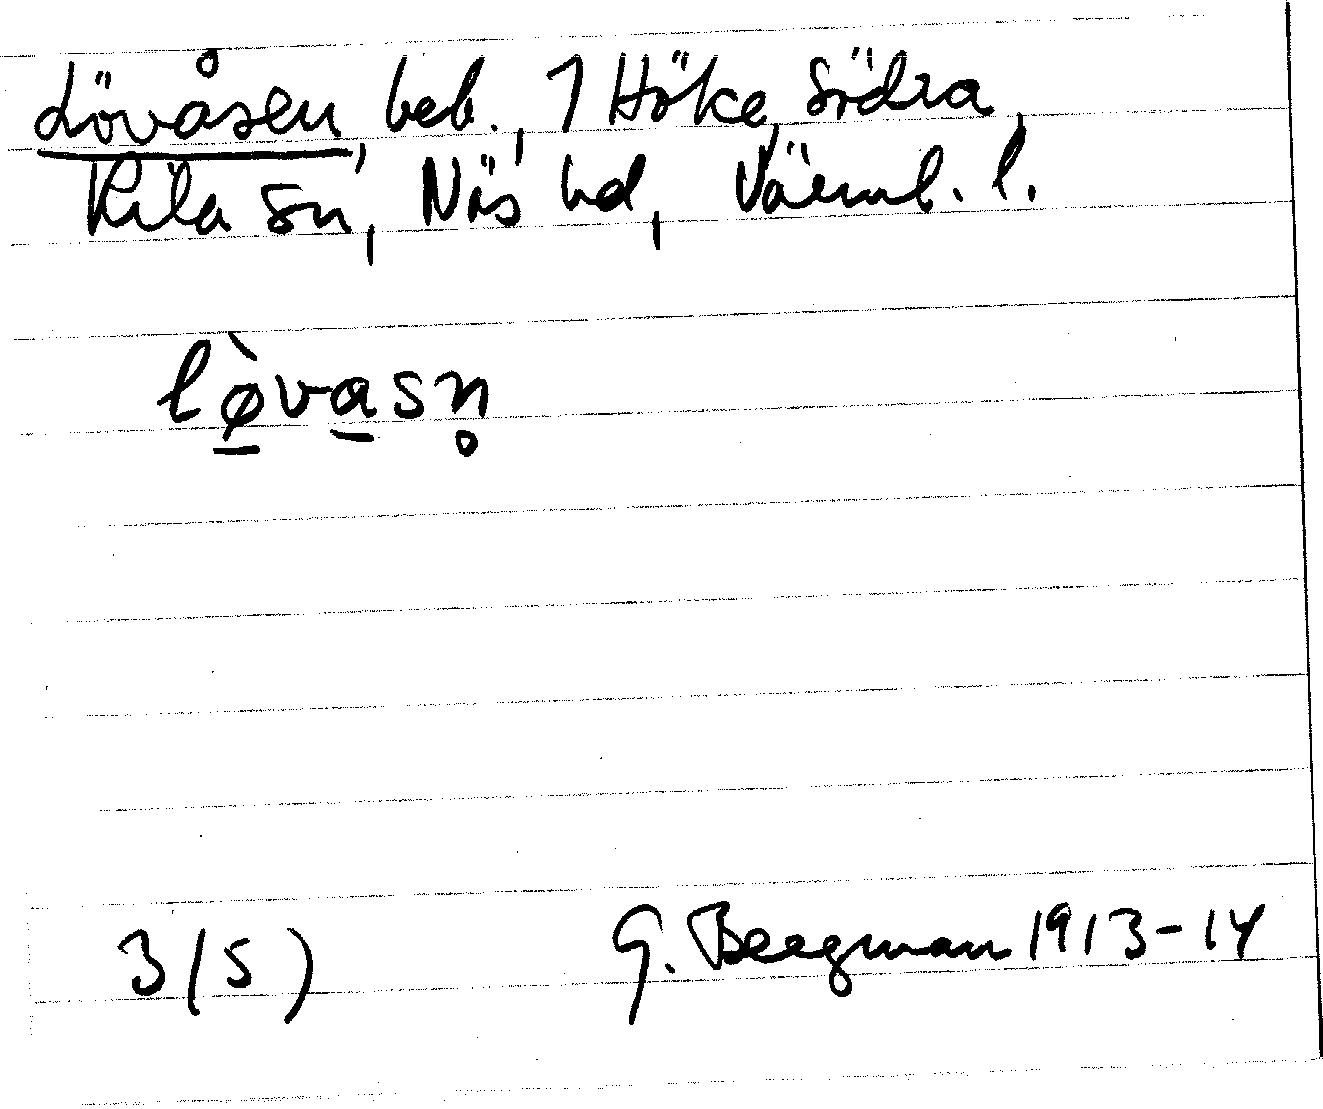 Lövåsen, beb., 1 Höke, Södra,
Kila sn, Näs hd, Värml. l.
lø̱̀va̱sn̥
3(5) G. Bergman 1913-14